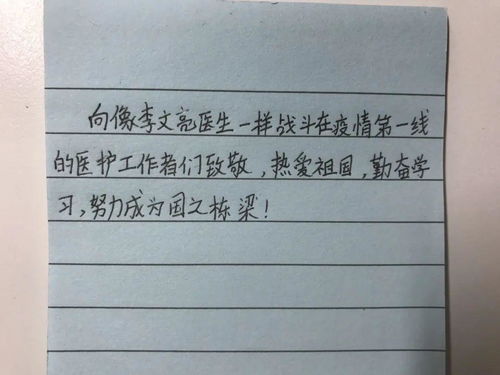 向像李文亮医生一样战斗在疫情第一线
的医护工作者们致敬，热爱祖国，勤奋学
习，努力成为国之栋梁！